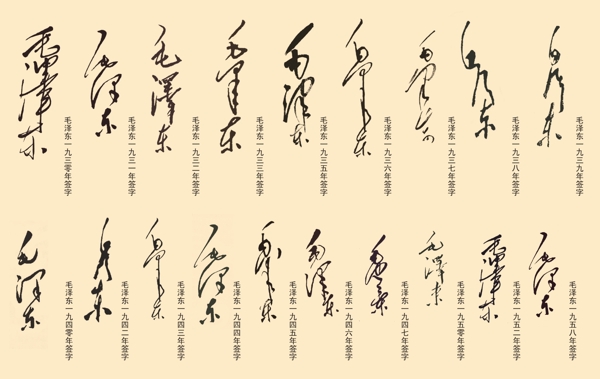 毛泽东
毛泽东一九三零年签字
毛泽东
毛泽东一九三一年签字
毛澤东
毛泽东一九三二年签字
毛泽东
毛泽东一九三三年签字
毛泽东
毛泽东一九三五年签字
毛泽东
毛泽东一九三六年签字
毛泽东
毛泽东一九三七年签字
毛泽东
毛泽东一九三八年签字
毛泽东
毛泽东一九三九年签字
毛泽东
毛泽东一九四零年签字
毛泽东
毛泽东一九四二年签字
毛泽东
毛泽东一九四三年签字
毛泽东
毛泽东一九四四年签字
毛泽东
毛泽东一九四五年签字
毛泽东
毛泽东一九四六年签字
毛泽东
毛泽东一九四七年签字
毛澤东
毛泽东一九五零年签字
毛泽东
毛泽东一九五二年签字
毛泽东
毛泽东一九五八年签字